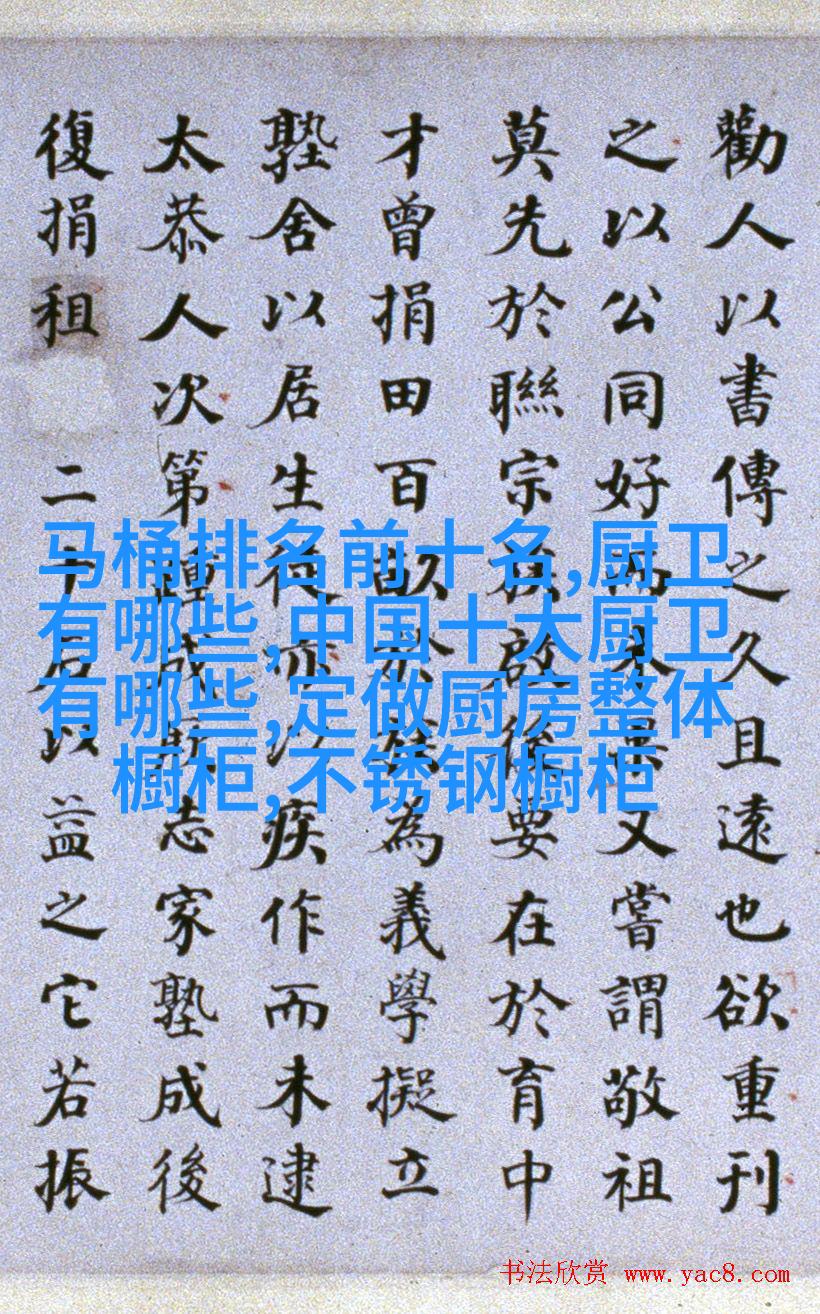 勸人以書傳之久且遠也欲重刊
之以公同好而未果又嘗謂敬祖
莫先於聯宗族啟後要在於育中
才曾捐田百畝於族為義學擬立
塾舍以居生徒亦以疾作而未逮
太恭人次第踵成厥志家塾成後
復捐租二十石以益之它若振
马桶排名前十名,厨卫
有哪些,中国十大厨卫
有哪些,定做厨房整体
橱柜,不锈钢橱柜
书法欣赏 www.yac8.com